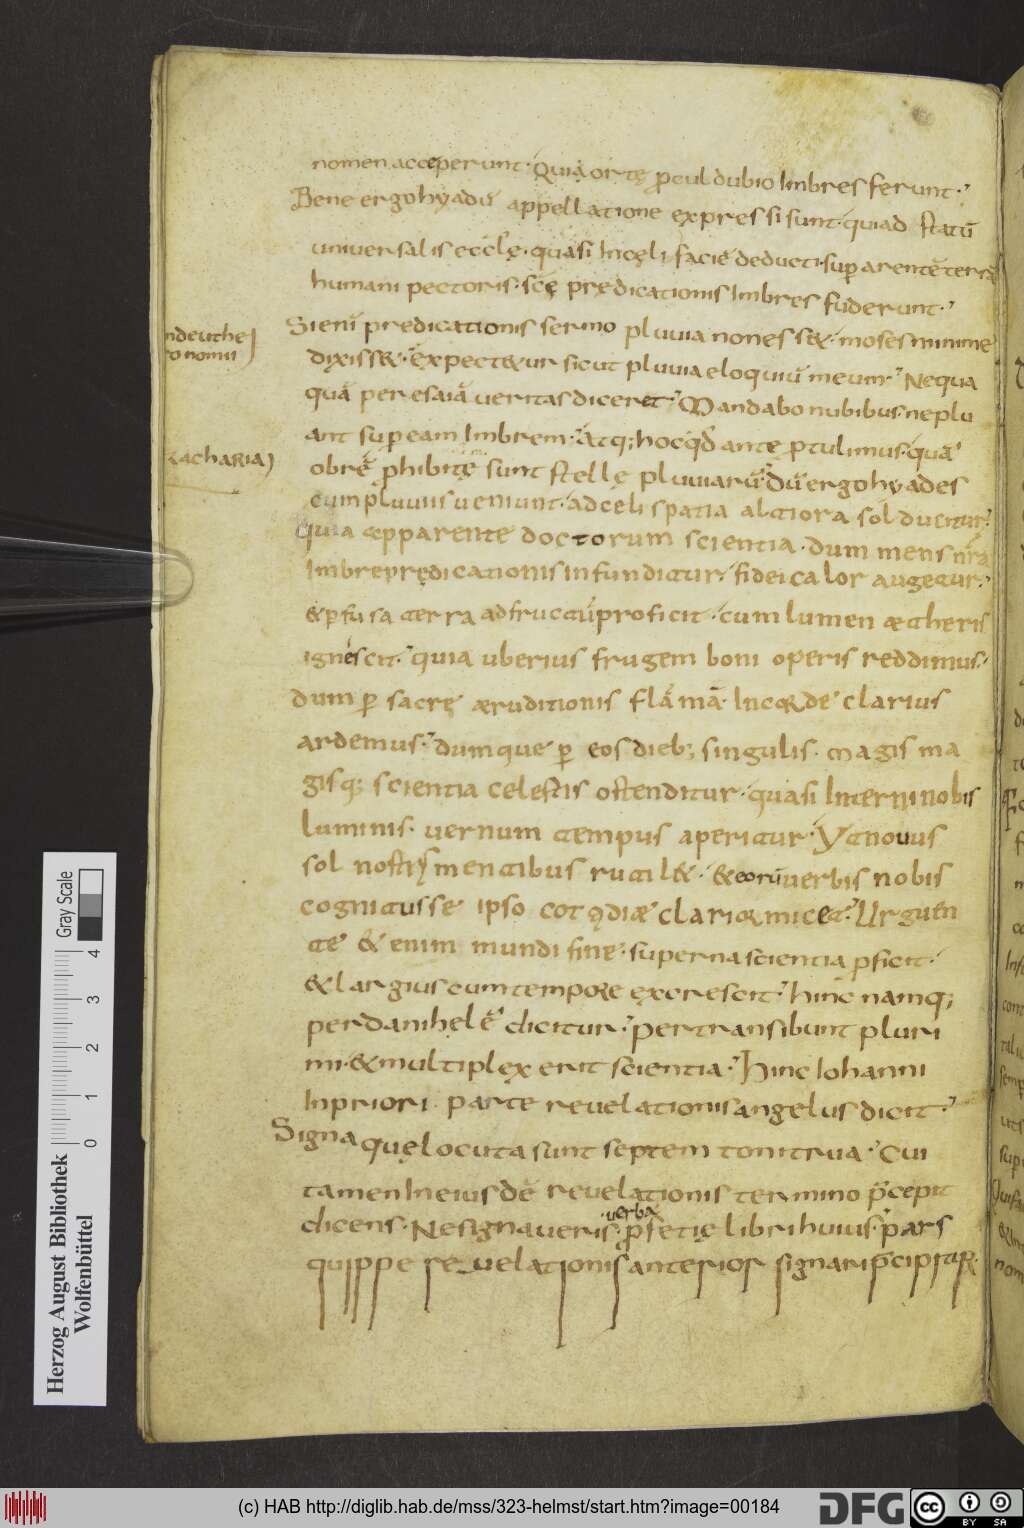 nomen acceperunt· Quia ortę ꝓcul dubio Imbres ferunt·
Bene ergo hyadū appellatione expressi sunt· qui ad statū
universalis eccłę· quasi In cęli faciē deducti· suꝑ arentē terrā
humani pectoris· scę prędicationis Imbres fuderunt·
ndeuthe
ronomii
Si enī predicationis sermo pluvia non ess&· moses minime
dixiss&· Expect&ur sicut pluvia eloquiū meum· Nequa
quā per esaiā veritas dicer&· Mandabo nubibus· ne plu
ant super eam Imbrem· Atq; hoc qd̄ ante ꝓtulimus· quā
Zacharia
obrē ꝓhibitę sunt stellę pluviarū· Dū ergo hyades
cum pluviis veniunt· ad celi spatia altiora sol ducitur·
quia apparente doctorum scientia· dum mens nr̄a
Imbre prędicationis infunditur· fidei calor augetur·
& ꝑfusa terra ad fructū proficit· cum lumen ætheris
ignescit· quia uberius frugem boni operis reddimus·
dum ꝑ sacrę æruditionis flāmā In corde clarius
ardemus· dumque ꝑ eos dieb; singulis· magis ma
gisq; scientia celestis ostenditur· quasi Interni nobis
luminis· vernum tempus aperitur· Vt novus
sol nostris mentibus rutil&· & eorū verbis nobis
cognitus se ipso cotidiæ clarior micet· Urguen
te & enim mundi fine· superna scientia ꝓficit·
& largius cum tempore excrescit· hinc namq;
per danihelē dicitur· Pertransibunt pluri
mi· & multiplex erit scientia· Hinc Iohanni
In priori parte revelationis angelus dicit·
Signa quę locuta sunt septem tonitrua· Cui
tamen In eiusdē revelationis termino p̄cepit
dicens· Ne signaveris· verba ꝓfetię libri huius· pars
quippe revelationis anterior signari p̄cipitur·
Gray Scale
0 1 2 3 4
Herzog August Bibliothek
Wolfenbüttel
(c) HAB http://diglib.hab.de/mss/323-helmst/start.htm?image=00184
DFG
cc
BY SA